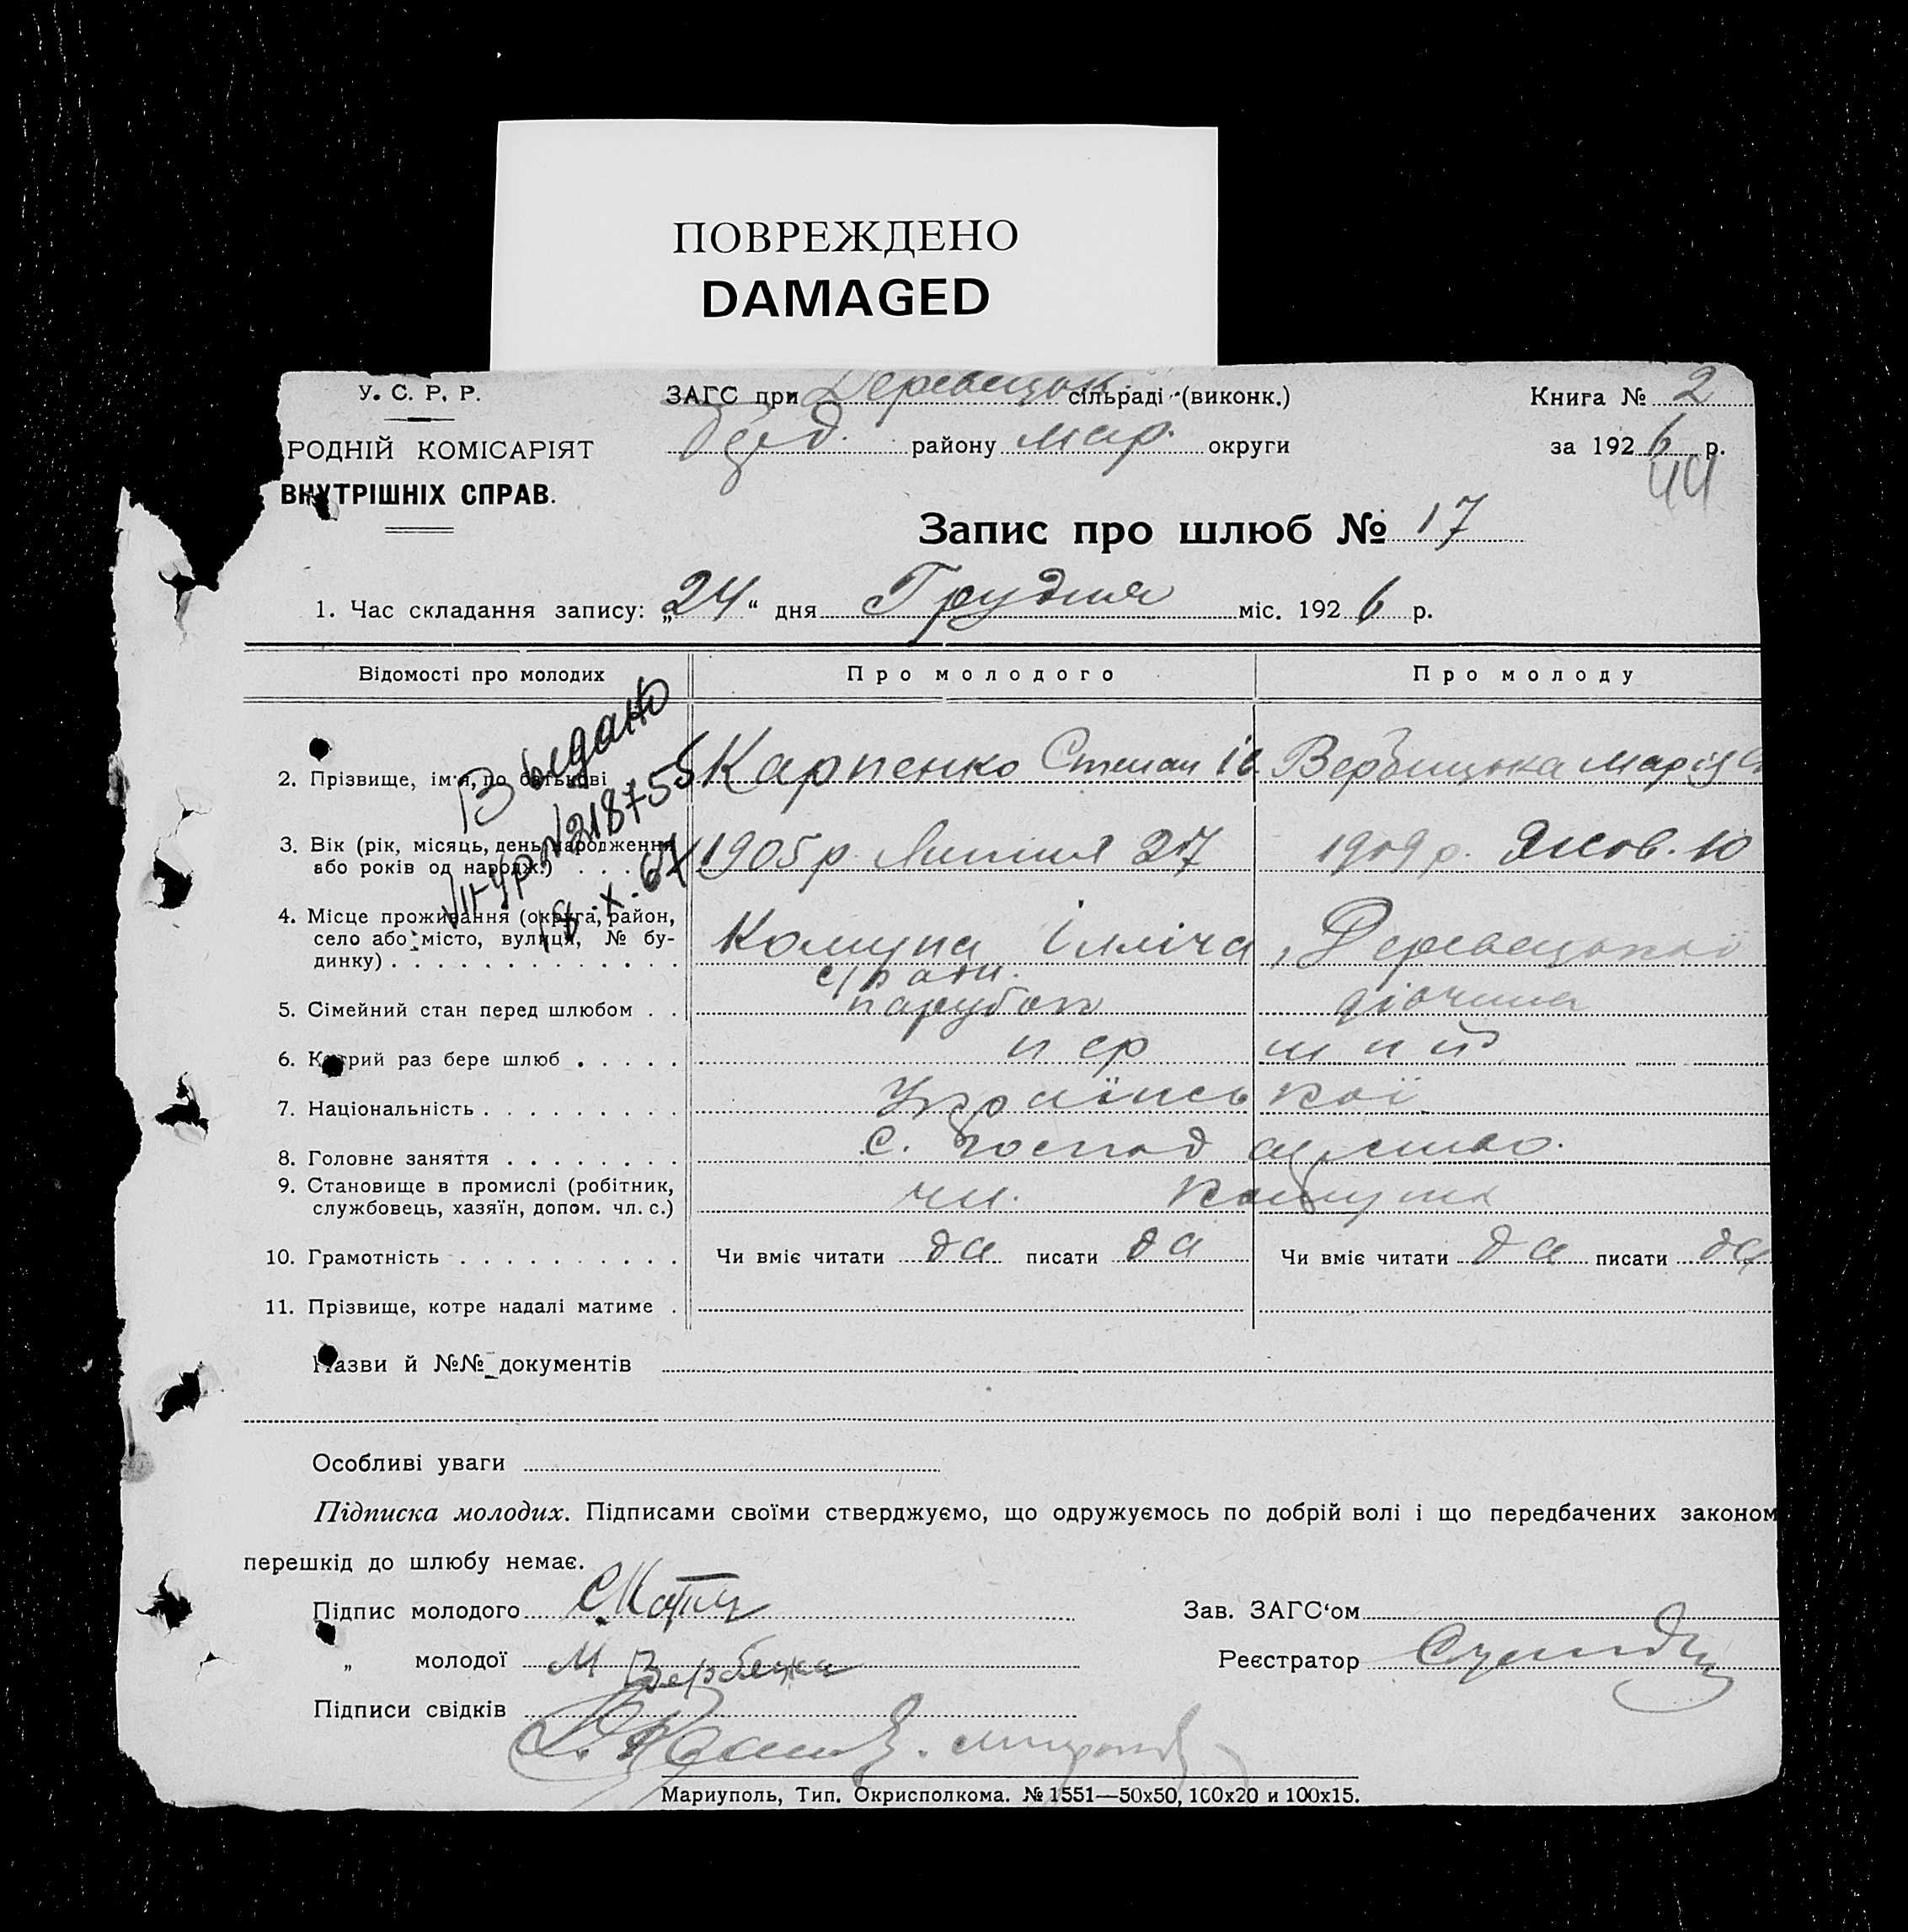 ПОВРЕЖДЕНО
DAMAGED
У. С. Р. Р.
РОДНІЙ КОМІСАРІЯТ
ВНУТРІШНІХ СПРАВ.
ЗАГС при сільраді (виконк.)
району Мар. округи
Книга № 2
за 1926 р.
44
Запис про шлюб № 17
1. Час складання запису: „24“ дня Грудня міс. 1926 р.
Відомості про молодих Про молодого Про молоду
Выдано
VII-УР № 218755
18.X.67
2. Прізвище, ім'я, по батькові Карпенко Степан Ів. Вербицька Марія
3. Вік (рік, місяць, день народження або років од народж.) 1905 р. Липня 27 1909 р. Жов. 10
4. Місце проживання (округа, район,
село або місто, вулиця, № бу-
динку) Комуна Ілліча, Деревецької
с/ради.
5. Сімейний стан перед шлюбом парубок дівчина
6. Котрий раз бере шлюб перший
7. Національність Української
8. Головне заняття с. господарство.
9. Становище в промислі (робітник,
службовець, хазяїн, допом. чл. с.) чл. комуни
10. Грамотність Чи вміє читати да писати да Чи вміє читати да писати да
11. Прізвище, котре надалі матиме
Назви й №№ документів
Особливі уваги
Підписка молодих. Підписами своїми стверджуємо, що одружуємось по добрій волі і що передбачених законом
перешкід до шлюбу немає.
Підпис молодого Зав. ЗАГС‘ом
„ молодої М Вербецка Реєстратор
Підписи свідків
Мариуполь, Тип. Окрисполкома. № 1551—50х50, 100х20 и 100х15.